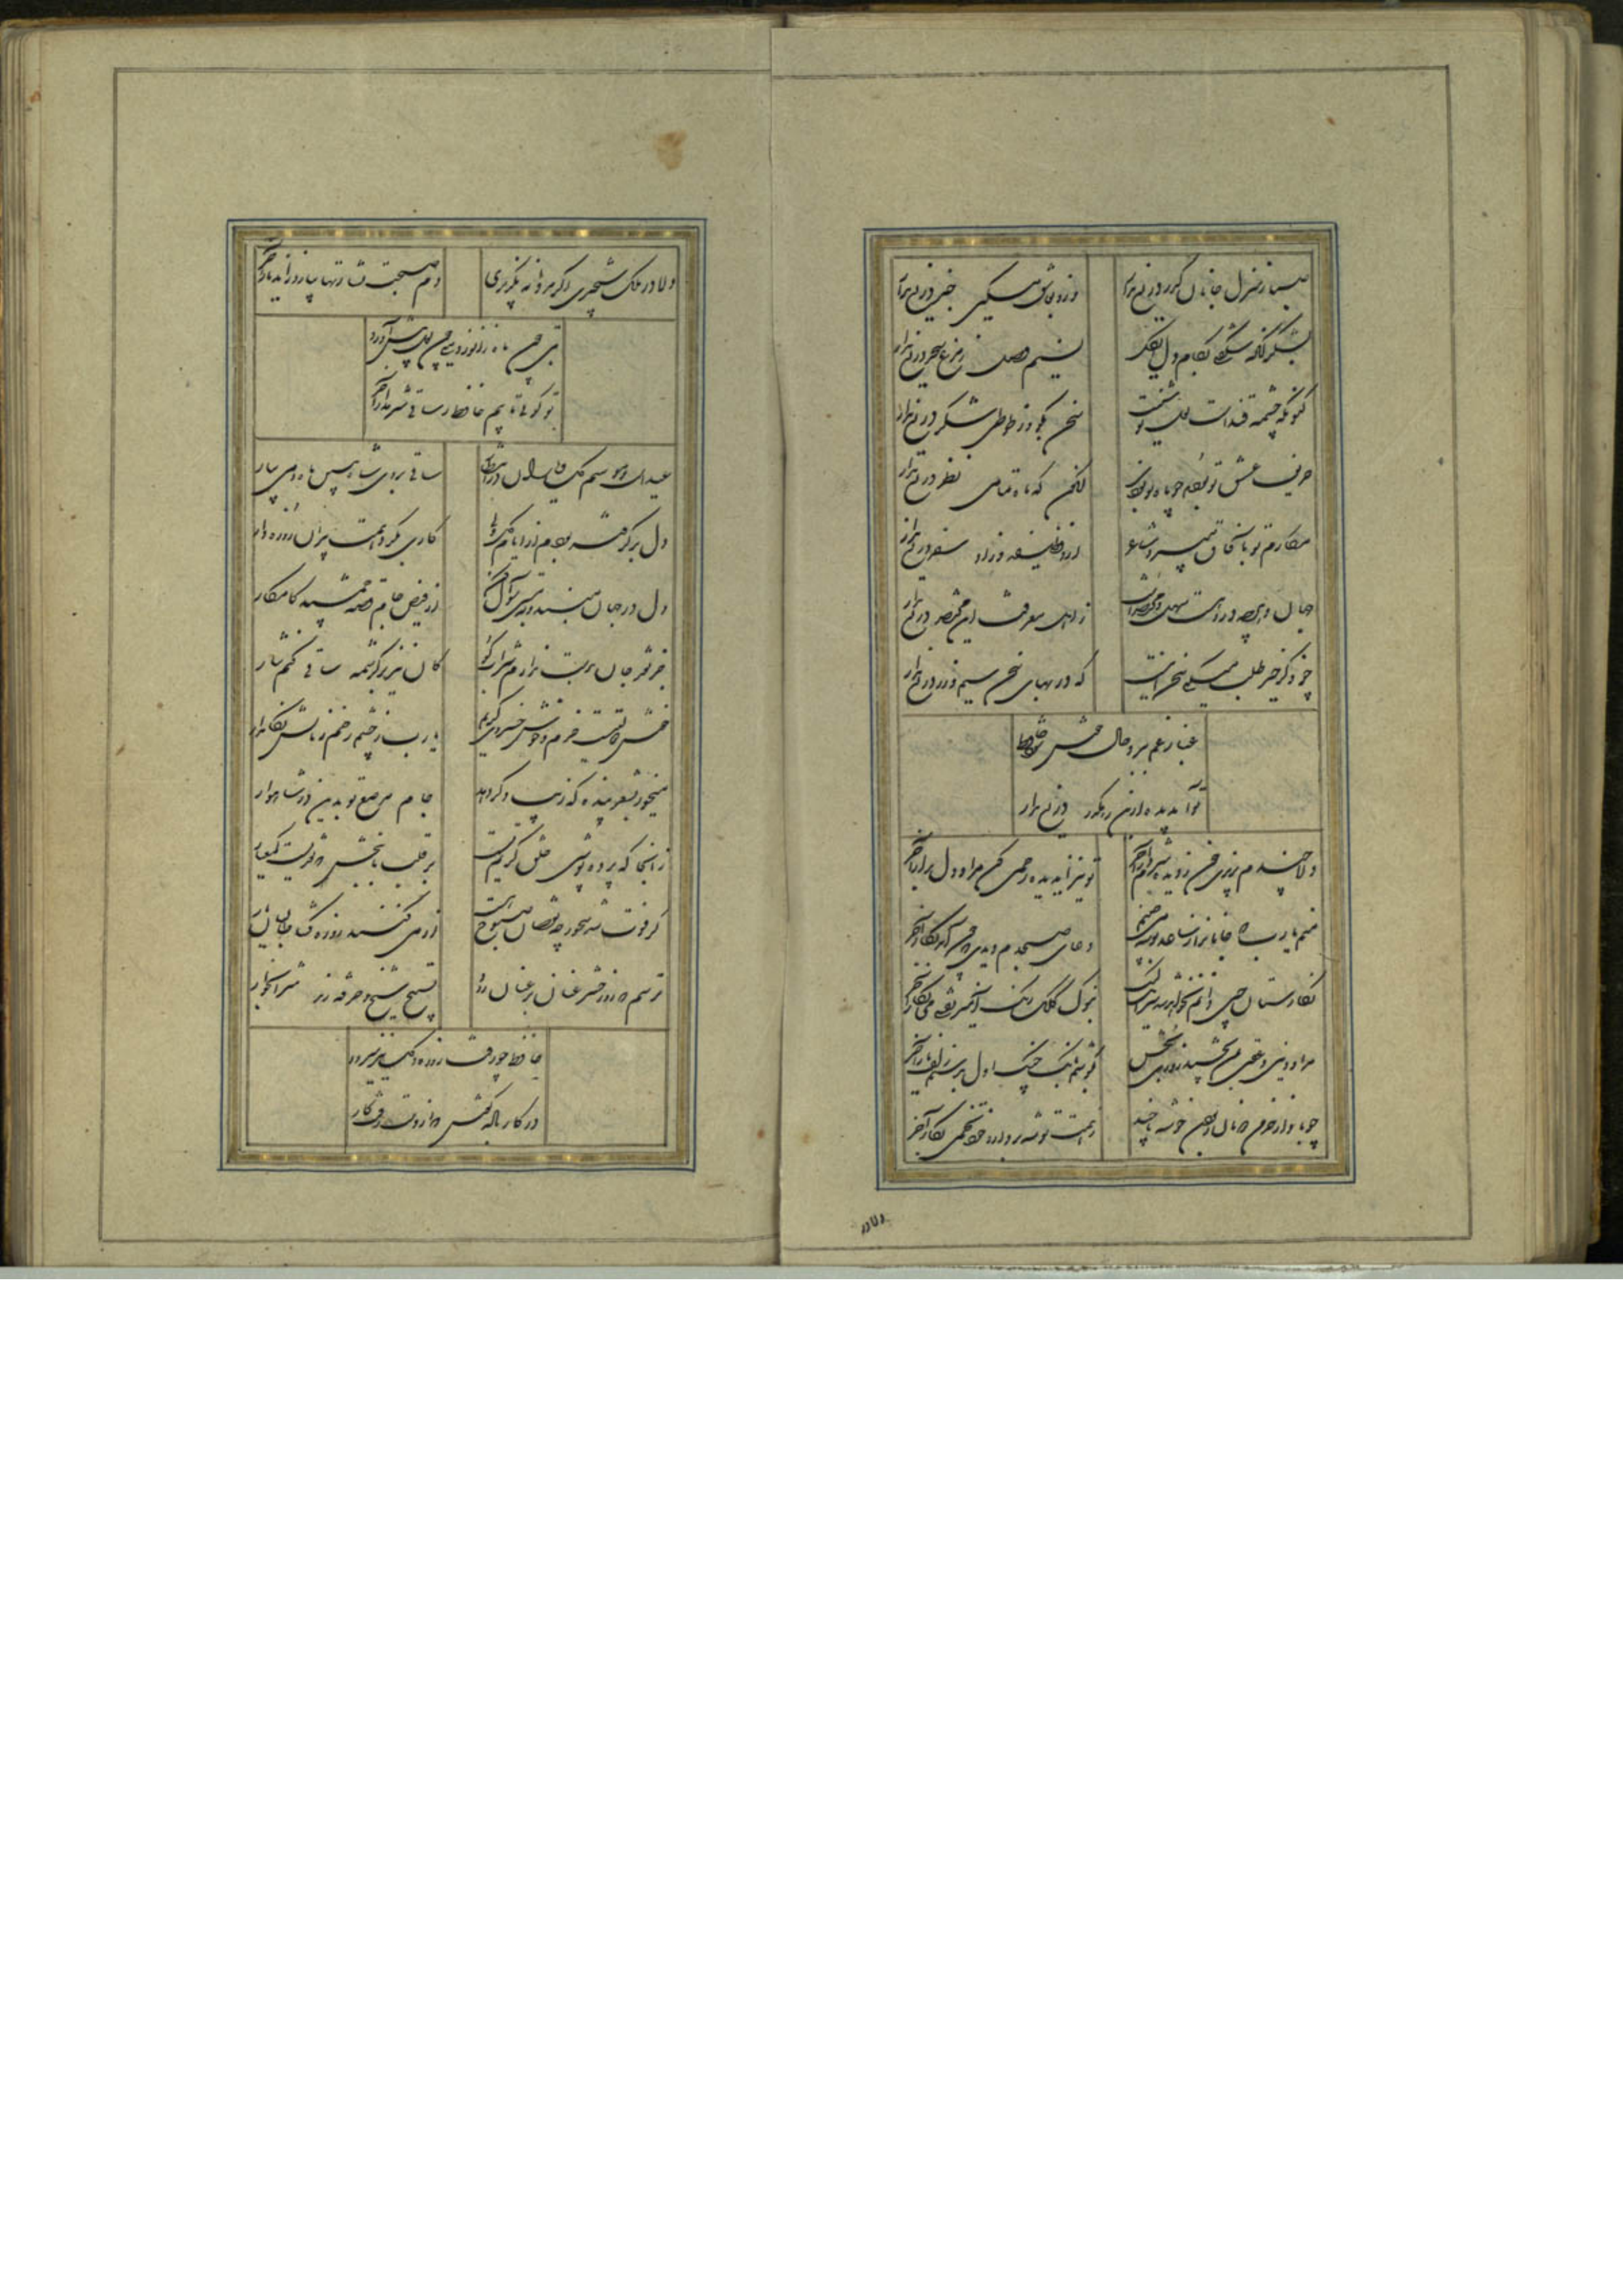 صبا ز منزل جانان گذر دریغ مدار
وزو بعاشق مسکین خبر دریغ مدار
بشکر آنکه شکفتی بکام دل ای گل
نسیم وصل ز مرغ سحر دریغ مدار
کنونکه چشمه قندست لعل نوشینت
سخن بگو و ز طوطی شکر دریغ مدار
حریف عشق تو بودم چو ماه نو بودی
کنون که ماه تمامی نظر دریغ مدار
مکارم تو بآفاق میبرد شاعر
ازو وظیفه و زاد سفر دریغ مدار
جهان و هرچه دروست سهل و مختصرست
ز اهل معرفت این مختصر دریغ مدار
چو ذکر خیر طلب میکنی سخن اینست
که در بهای سخن سیم و زر دریغ مدار
غبار غم برود حال خوش شود حافظ
تو آب دیده ازین رهگذر دریغ مدار
دلا چندم بریزی خون ز دیده شرم دار آخر
تو نیز ای دیده رحمی کن مراد دل برار آخر
منم یارب که جانانرا ز ساعد بوسه می‌چینم
دعای صبحدم دیدی که چون آمد بکار آخر
نگارستان چین دانم نخواهد شد سرایت لیک
بنوک کلک رنگ آمیز نقشی می‌نگار آخر
مراد دنیی و عقبی بمن بخشید روزی بخش
بگوشم بانگ چنگ اول بدستم زلف یار آخر
چو باد از خرمن دونان ربودن خوشه تا چند
ز همت توشه بردار و خود تخمی بکار آخر
دلا در
دلا در ملک شبخیزی گر از اندوه نگریزی
دم صبحت بشارتها بیارد زان دیار آخر
بتی چون ماه زانو زد میی چون لعل پیش آورد
تو گویی تایبم حافظ ز ساقی شرم دار آخر
عیدست و موسم گل و یاران در انتظار
ساقی بروی شاه ببین ماه و می بیار
دل برگرفته بودم از ایام گل ولی
کاری بکرد همت پاکان روزه دار
دل در جهان مبند و ز مستی سؤال کن
از فیض جام و قصه جمشید کامکار
جز نقد جان بدست ندارم شراب کو
کان نیز بر کرشمه ساقی کنم نثار
خوش دولتیست خرم و خوش خسروی کریم
یارب ز چشم زخم زمانش نگاهدار
می‌خور بشعر بنده که زیبی دگر دهد
جام مرصع تو بدین در شاهوار
زانجا که پرده پوشی خلق کریم تست
بر قلب ما ببخش که نقدیست کم عیار
گر فوت شد سحور چه نقصان صبوح هست
از می کنند روزه گشا طالبان یار
ترسم که روز حشر عنان بر عنان رود
تسبیح شیخ و خرقه رند شرابخوار
حافظ چو رفت روزه و گل نیز میرود
در کار باده کوش که از دست رفت کار